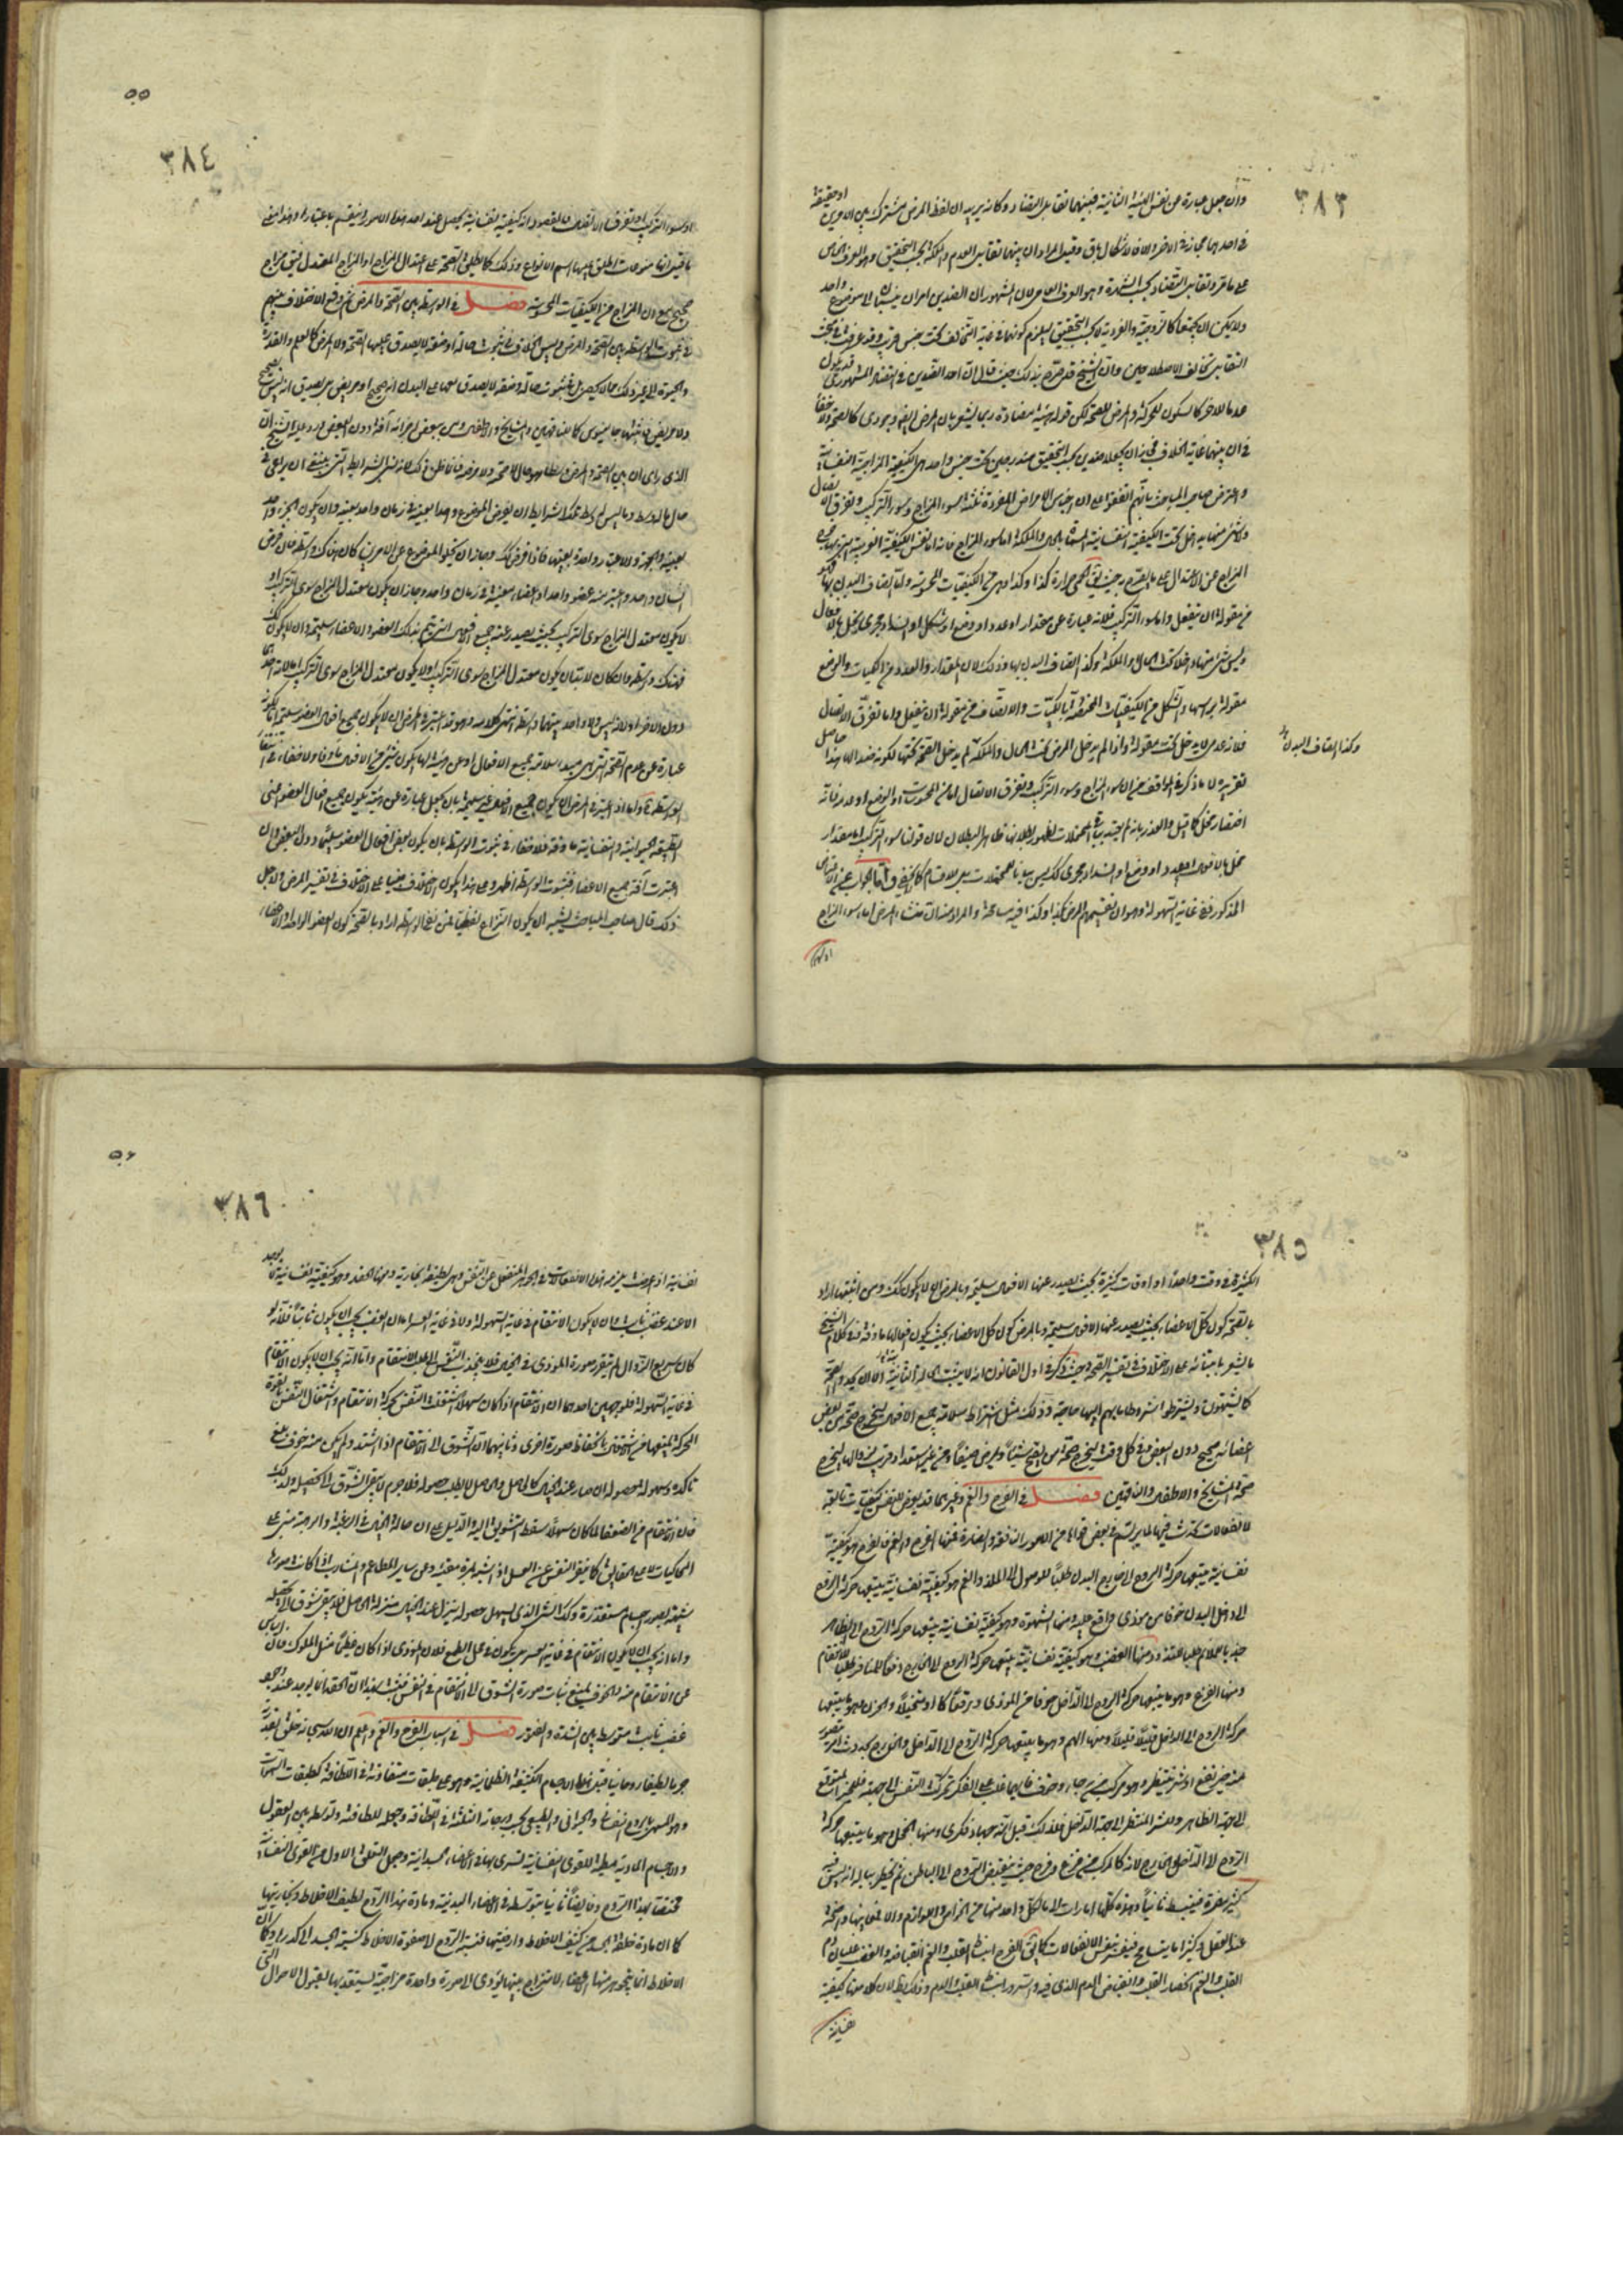 ٣٨٣
وان جعل عبارة عن نفس الهيئة الثانية فبينهما تقابل التضاد وكانه يريد ان لفظ المرض مشترك بين الامرين او حقيقة
في احدهما مجاز في الاخر والا فالاشكال باق وقيل المراد ان بينهما تقابل العدم والملكة بحسب التحقيق وهو العرف الخاص
على ما مر وتقابل التضاد بحسب الشهرة وهو العرف العامى لان المشهور ان الضدين امران ينسبان الى موضوع واحد
ولا يمكن ان يجتمعا كالزوجية والفردية لا بحسب التحقيق ليلزم كونهما في غاية التخالف تحت جنس قريب وقد عرفت في بحث
التقابل تخالف الاصطلاحين وان الشيخ قد صرح بذلك حيث قال ان احد الضدين في التضاد المشهورى قد يكون
عدما للاخر كالسكون للحركة والمرض للصحة لكن قوله هيئة مضادة ربما يشعر بان المرض ايضا وجودى كالصحة ولا خفاء
في ان بينهما غاية الخلاف فجاز ان يجعلا ضدين بحسب التحقيق مندرجين تحت جنس واحد هو الكيفية المزاجية النفسانية
واعترض صاحب المباحث بانهم اتفقوا على ان اجناس الامراض المفردة ثلثة سوء المزاج وسوء التركيب وتفرق الاتصال
ولا شئ منها بداخل تحت الكيفية النفسانية المسماة بالحال والملكة اما سوء المزاج فانه اما نفس الكيفية الغريبة التى بها خرج
المزاج عن الاعتدال على ما يصرح به حيث يق الحمى حرارة كذا وكذا وهى من الكيفيات المحسوسة واما اتصاف البدن بها فهو
من مقولة ان ينفعل واما سوء التركيب فلانه عبارة عن مقدار او عدد او وضع او شكل او انسداد مجرى مخل بالافعال
وليس شئ منها داخلا تحت الحال والملكة وكذا اتصاف البدن بها وذلك لان المقدار والعدد من الكميات والوضع
مقولة براسها والشكل من الكيفيات المختصة بالكميات والاتصاف من مقولة ان ينفعل واما تفرق الاتصال
فلانه عدمى لا يدخل تحت مقولة واذا لم يدخل المرض تحت الحال والملكة لم يدخل الصحة تحتها لكونه ضدا لها هذا حاصل
تقريره لا ما ذكره في المواقف من ان سوء المزاج وسوء التركيب وتفرق الاتصال اما من المحسوسات او الوضع او عدم فانه
اختصار مخل كما قيل والعذر بانه لم يعتد بباقى المحتملات لظهور بطلانها ظاهر البطلان لان قولنا سوء التركيب اما مقدار
مخل بالافعال او عدد او وضع او انسداد مجرى كذلك ليس بيانا للمحتملات بل للاقسام كما لا يخفى واما الجواب عن الاعتراض
المذكور ففي غاية السهولة وهو ان تقسيمهم المرض كذا وكذا فيه مسامحة والمراد منه ان منشاء المرض اما سوء المزاج
او سوء
وكذا اتصاف البدن بها
٥٥
٣٨٤
او سوء التركيب او تفرق الاتصال فالمقصود انه كيفية نفسانية يحصل عند احد هذه الامور وينقسم باعتبارها وهذا معنى
ما قيل انها منوعات اطلق عليها اسم الانواع وذلك كما يطلق الصحة على اعتدال المزاج او المزاج المعتدل فيق مزاج
صحيح مع ان المزاج من الكيفيات المحسوسة فصل في الواسطة بين الصحة والمرض ثم وقع الاختلاف بينهم
في ثبوت الواسطة بين الصحة والمرض وليس الخلاف في ثبوت حالة او صفة لا يصدق عليها الصحة ولا المرض كالعلم والقدرة
والحيوة الى غير ذلك مما لا يحصى بل في ثبوت حالة وصفة لا يصدق معها على البدن انه صحيح او مريض بل يصدق انه ليس بصحيح
ولا مريض فاثبتها جالينوس كما للناقهين والمشايخ والاطفال ومن ببعض اعضائه آفة دون البعض ورد عليه الشيخ ان
الذى راى ان بين الصحة والمرض وسطا هو حال لا صحة ولا مرض فانما ظن ذلك لانه نسى الشرايط التى ينبغى ان يراعى في
حال ما له وسط وما ليس له وسط وتلك الشرايط ان يفرض الموضوع واحدا بعينه في زمان واحد بعينه وان يكون الجزء واحد
بعينه والجهة والاعتبار واحدة بعينها فاذا فرض كذلك وجاز ان يخلو الموضوع عن الامرين كان هناك واسطة فان فرض
انسان واحد واعتبر منه عضو واحد او اعضاء معينة في زمان واحد وجاز ان يكون معتدل المزاج سوى التركيب او
لا يكون معتدل المزاج سوى التركيب بحيث يصدر عنه جميع الافعال التى يتم بذلك العضو او الاعضاء سليمة وان لا يكون كذلك
فهناك واسطة وان كان لا بد ان يكون معتدل المزاج سوى التركيب او لا يكون معتدل المزاج سوى التركيب اما لثبوت احدهما
دون الاخر او لانه ليس ولا واحد بينهما واسطة انتهى كلامه وهو قد اعتبر في المرض ان لا يكون جميع افعال العضو سليمة اما لكونه
عبارة عن عدم الصحة التى هى مبدء سلامة جميع الافعال او عن هيئة بها يكون شئ من الافعال مأوفا ولا خفاء في انتفاء
الواسطة ح واما اذا اعتبر في المرض ان يكون جميع الافعال غير سليمة بان يجعل عبارة عن هيئة يكون جميع افعال العضو اعنى
الطبيعية والحيوانية والنفسانية مأوفة فلا خفاء في ثبوت الواسطة بان يكون بعض افعال العضو سليما دون البعض وان
اعتبرت آفة جميع الاعضاء فثبوت الواسطة اظهر وعلى هذا يكون الاختلاف مبنيا على الاختلاف في تفسير المرض ولاجل
ذلك قال صاحب المباحث يشبه ان يكون النزاع لفظيا فمن نفى الواسطة اراد بالصحة كون العضو الواحد او الاعضاء
٣٨٥
الكثيرة في وقت واحدا او اوقات كثيرة بحيث يصدر عنها الافعال سليمة وبالمرض ان لا يكون كذلك ومن اثبتها اراد
بالصحة كون كل الاعضاء بحيث يصدر عنها الافعال سليمة وبالمرض كون كل الاعضاء بحيث يكون افعالها مأوفة وفي كلام الشيخ
ما يشعر بابتنائه على الاختلاف في تفسير الصحة حيث ذكر في اول القانون انه لا يثبت الحالة الثالثة الا ان يحدوا الصحة
كما يشتهون ويشترطوا شروطا ما بهم اليها حاجة وذلك مثل اشتراط سلامة جميع الافعال ليخرج صحة من بعض
اعضائه صحيح دون البعض وفي كل وقت ليخرج صحة من يصح شتاء ويمرض صيفا ومن غير استعداد قريب لزوالها ليخرج
صحة المشايخ والاطفال والناقهين فصل في الفرح والغم وغيرهما قد يعرض للنفس كيفيات تابعة
لانفعالات تحدث فيها لما يرتسم في بعض قواها من الامور النافعة والضارة فمنها الفرح والغم فالفرح هو كيفية
نفسانية يتبعها حركة الروح الى خارج البدن طلبا للوصول الى الملذ والغم هو كيفية نفسانية يتبعها حركة الروح
الى داخل البدن خوفا من موذى واقع عليه ومنها الشهوة وهو كيفية نفسانية يتبعها حركة الروح الى الظاهر
جذبا للملايم طلبا للتلذذ ومنها الغضب وهو كيفية نفسانية يتبعها حركة الروح الى الخارج دفعا للمنافر طلبا للانتقام
ومنها الفزع وهو ما يتبعها حركة الروح الى الداخل خوفا من الموذى واقعا كان او متخيلا والحزن هو ما يتبعها
حركة الروح الى الداخل قليلا قليلا ومنها الهم وهو ما يتبعها حركة الروح الى الداخل والخارج لحدوث امر يتصور
منه خير يتوقع او شر ينتظر وهو مركب من رجاء وخوف فايهما غلب على الفكر تحركت النفس الى جهته فللخير المتوقع
الى جهة الظاهر وللشر المنتظر الى جهة الداخل فلذلك قيل انه جهاد فكرى ومنها الخجل وهو ما يتبعها حركة
الروح الى الداخل والخارج لانه كالمركب من فزع وفرح حيث ينقبض الروح الى الباطن ثم يخطر بباله انه ليس فيه
كثير مضرة فينبسط ثانيا وهذه كلها اشارات الى ما لكل واحد منها من الخواص واللوازم والا فمعانيها واضحة
عند العقل وكثيرا ما يتسامح فيفسر بنفس الانفعالات كما يق الفرح انبساط القلب والغم انقباضه والغضب غليان دم
القلب والغم انحصار القلب وانقباض الدم الذى فيه والسرور انبساط القلب والدم وذلك باطل لان كلا منها كيفية
نفسانية
٥٦
٣٨٦
نفسانية اذا عرضت يلزمها هذه الانفعالات في الجوهر المنفعل عن النفس وهى لطيفة بخارية ومنها الحقد وهو كيفية نفسانية لا يوجد
الا عند غضب ثابت وان لا يكون الانتقام في غاية السهولة ولا في غاية العسر اما ان الغضب يجب ان يكون ثابتا فلانه لو
كان سريع الزوال لم يتقرر صورة الموذى في الخيال فلا ينجذب النفس الى طلب الانتقام واما انه يجب ان لا يكون الانتقام
في غاية السهولة فلوجهين احدهما ان الانتقام اذا كان سهلا اشتغلت النفس بحركة الانتقام واشتغال النفس بالقوة
المحركة يمنعها من اشتغال بانحفاظ صورة اخرى وثانيهما ان الشوق الى الانتقام اذا اشتد ولم يكن منه خوف بلغ
تاكده وسهولة حصوله الى ان صار عند الخيال كالحاصل والحاصل لا يطلب حصوله فلا جرم لا يبقى الشوق الى تحصيله ولذلك
فان الانتقام من الضعفاء لما كان سهلا سقط التشوق اليه والدليل على ان حالة الخيال في الرغبة والرهبة مبنى على
المحاكيات لا على الحقايق كما تنفر النفس عن العسل اذا شبه بمرة مقيئة وعن ساير المطاعم والمشارب اذا كانت صورها
شبيهة بصور اجسام مستقذرة وكذا الشئ الذى يسهل حصوله يتنزل عند الخيال منزلة الحاصل فلا يبقى شوق الى تحصيله
واما انه يجب ان لا يكون الانتقام في غاية العسر بل يكون في محل الطمع فلان الموذى اذا كان عظيما مثل الملوك فاليأس
عن الانتقام منه والخوف يمنع ثبات صورة الشوق الى الانتقام في النفس فثبت بهذا ان الحقد انما يوجد عند وجود
غضب ثابت متوسط بين الشدة والضعف فصل في اسباب الفرح والغم واعلم ان الله سبحانه خلق بقدرته
جرما لطيفا روحانيا قبل هذه الاجسام الكثيفة الظلمانية وهو على طبقات متفاوتة في اللطافة كطبقات السموات
وهو المسمى بالروح النفسانى والحيوانى والطبيعى بحسب درجاته الثلثة في اللطافة وجعله للطافته وتوسطه بين العقول
والاجسام المادية مطية للقوى النفسانية تسرى بها في الاعضاء الجسدانية وجعل التعلق الاول من القوى النفسانية
مختصا بهذا الروح وفايضا ثانيا بتوسطه في الاعضاء البدنية ومادة هذا الروح لطيف الاخلاط وبخاريتها
كما ان مادة خلقة الجسد من كثيف الاخلاط وارضيتها فنسبة الروح الى صفوة الاخلاط كنسبة الجسد الى كدرها وكما ان
الاخلاط انما يتجوهر منها الاعضاء لامتزاج بينها يؤدى الى صورة واحدة مزاجية يستعد بها لقبول الاحوال التى